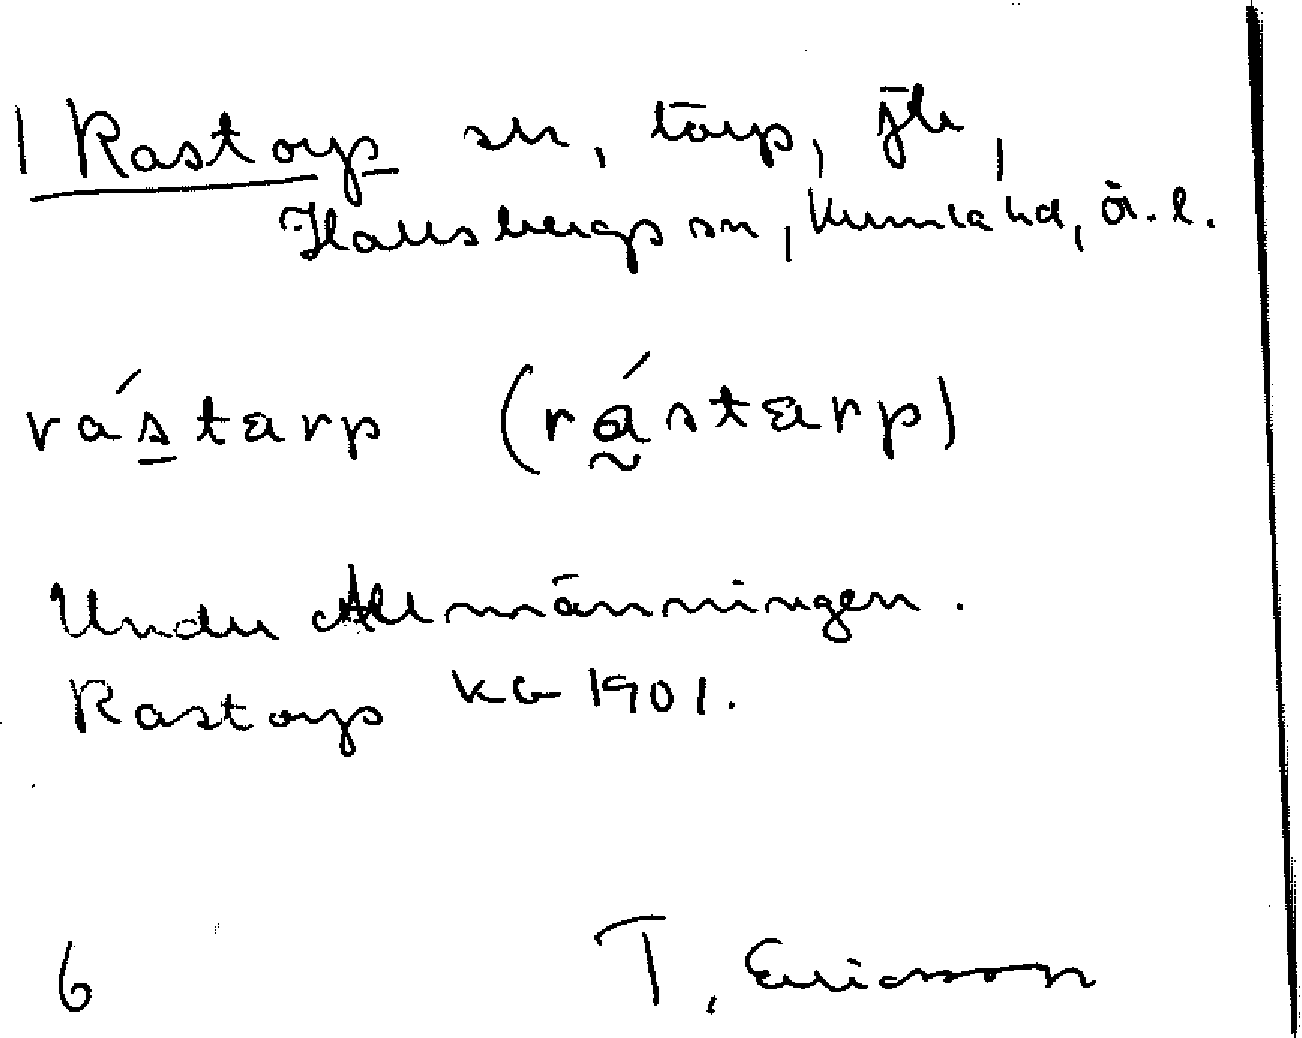 1 Rastorp sn, torp, jlr,
Hallsbergs sn, Kumla hd, ö. l.
rás̲tarp (rá̰starp)
Under Allmänningen.
Rastorp KG 1901.
6 T. Ericsson